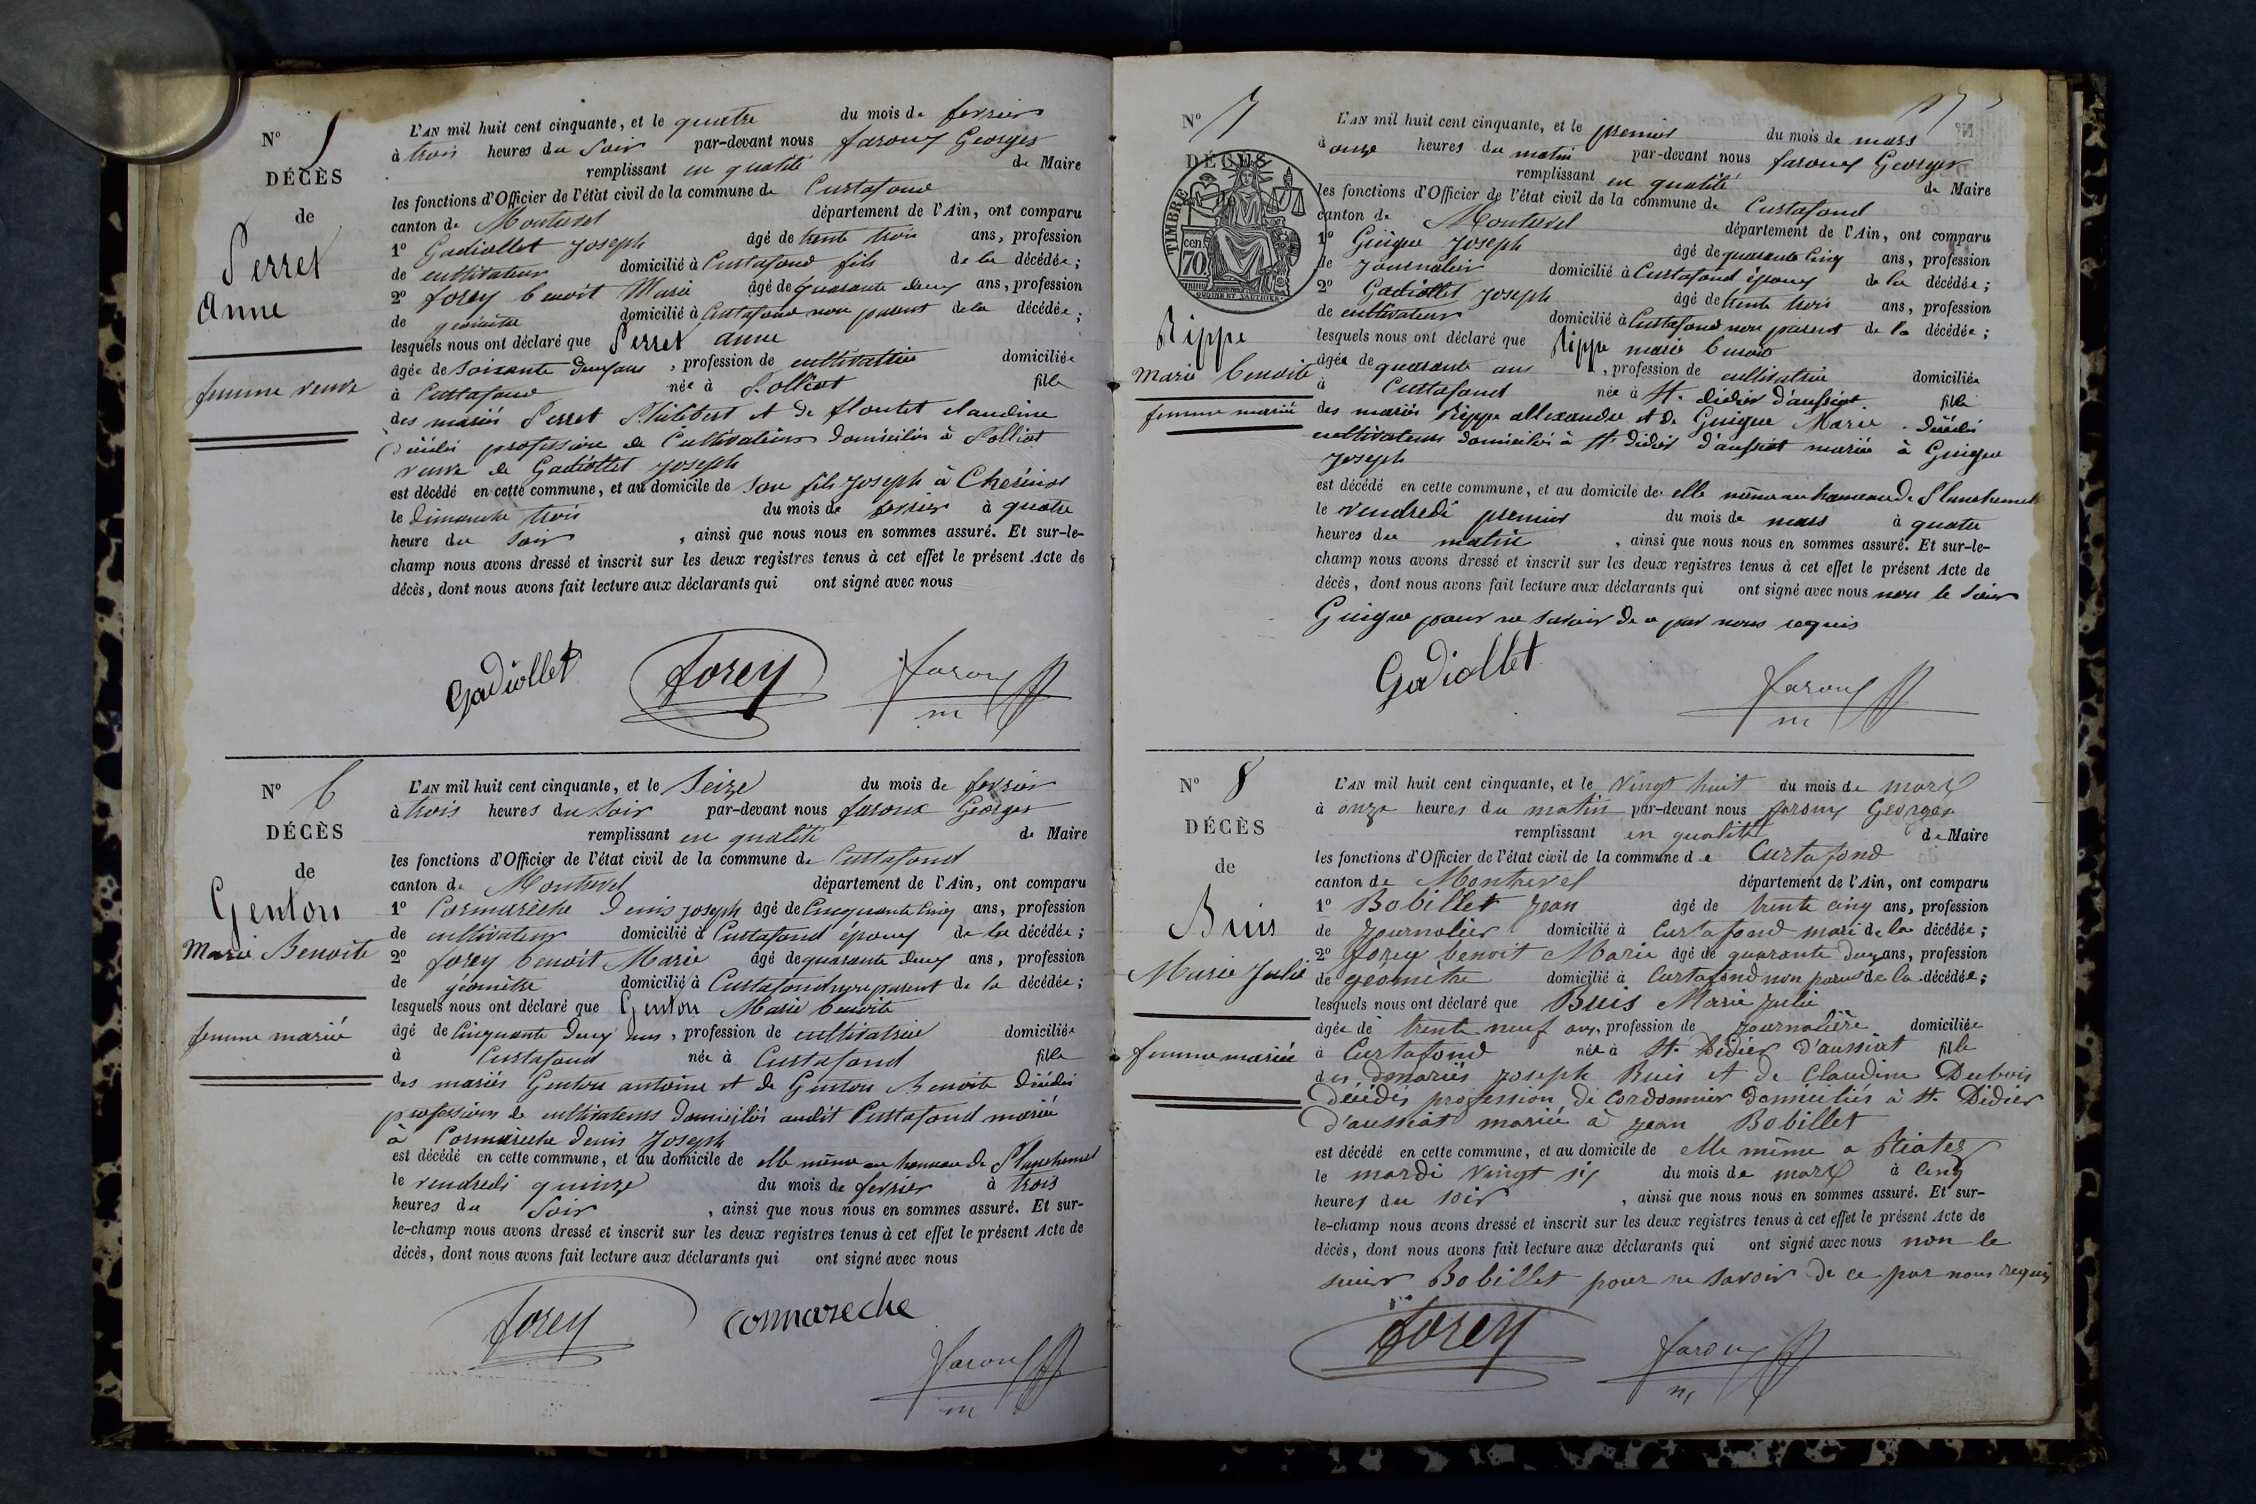 N° 5
DÉCÈS
de
Perret
Anne
femme veuve
L'AN mil huit cent cinquante, et le quatre du mois de fevrier
à trois heures du soir par-devant nous faroux Georges
remplissant en qualité de Maire
les fonctions d'Officier de l'état civil de la commune de Curtafond
canton de Montrevel département de l'Ain, ont comparu
1° Gadiollet Joseph âgé de trente trois ans, profession
de cultivateur domicilié à Curtafond fils de la décédée;
2° forey benoit Marie âgé de quarante deux ans, profession
de géomètre domicilié à Curtafond non parent de la décédée;
lesquels nous ont déclaré que Perret anne
âgée de soixante deux ans, profession de cultivatrice domiciliée
à Curtafond née à Polliat fille
des mariés Perret Philibert et de floutet claudine
Décédés profession de Cultivateurs domiciliés à Polliat
veuve de Gadiollet Joseph
est décédé en cette commune, et au domicile de son fils Joseph à
le dimanche trois du mois de fevrier à quatre
heure du soir, ainsi que nous nous en sommes assuré. Et sur-le-
champ nous avons dressé et inscrit sur les deux registres tenus à cet effet le présent Acte de
décès, dont nous avons fait lecture aux déclarants qui ont signé avec nous
Gadiollet forey faroux
m
N° 6
DÉCÈS
de
Genton
Marie Benoite
femme mariée
L'AN mil huit cent cinquante, et le Seize du mois de fevrier
à trois heures du soir par-devant nous faroux Georges
remplissant en qualité de Maire
les fonctions d'Officier de l'état civil de la commune de Curtafond
canton de Montrevel département de l'Ain, ont comparu
1° Cormarèche Denis Joseph âgé de Cinquante Cinq ans, profession
de cultivateur domicilié à Curtafond époux de la décédée;
2° forey benoit Marie âgé de quarante deux ans, profession
de géomètre domicilié à Curtafond non parent de la décédée;
lesquels nous ont déclaré que Genton Marie benoite
âgé de Cinquante Deux ans, profession de cultivatrice domiciliée
à Curtafond née à Curtafond fille
des mariés Genton antoine et de Genton Benoite Décédés
profession de cultivateurs domiciliés audit Curtafond mariée
à Cormarèche Denis Joseph
est décédé en cette commune, et au domicile de elle même au hameau de Planchemel
le vendredi quinze du mois de fevrier à trois
heures du Soir, ainsi que nous nous en sommes assuré. Et sur-
le-champ nous avons dressé et inscrit sur les deux registres tenus à cet effet le présent Acte de
décès, dont nous avons fait lecture aux déclarants qui ont signé avec nous
forey cormareche
faroux
m
N° 7
DÉCÈS
TIMBRE
cen
70
Rippe
Marie benoite
femme mariée
L'AN mil huit cent cinquante, et le premier du mois de mars
à onze heures du matin par-devant nous faroux Georges
remplissant en qualité de Maire
les fonctions d'Officier de l'état civil de la commune de Curtafond
canton de Montrevel département de l'Ain, ont comparu
1° Guigue Joseph âgé de quarante cinq ans, profession
de Journalier domicilié à Curtafond époux de la décédée;
2° Gadiollet Joseph âgé de trente trois ans, profession
de cultivateur domicilié à Curtafond non parent de la décédée;
lesquels nous ont déclaré que Rippe marie benoite
âgée de quarante ans, profession de cultivatrice domiciliée
à Curtafond née à St. didier d'aussiat fille
des mariés Rippe allexandre et de Guigue Marie Décédés
cultivateurs domiciliés à St didier d'aussiat mariée à Guigue
Joseph
est décédé en cette commune, et au domicile de elle même au hameau de Planchemel
le vendredi premier du mois de mars à quatre
heures du matin, ainsi que nous nous en sommes assuré. Et sur-le-
champ nous avons dressé et inscrit sur les deux registres tenus à cet effet le présent Acte de
décès, dont nous avons fait lecture aux déclarants qui ont signé avec nous non le sieur
Guigue pour ne savoir de ce par nous requis
Gadiollet faroux
m
N° 8
DÉCÈS
de
Buis
Marie Julie
femme mariée
L'AN mil huit cent cinquante, et le vingt huit du mois de mars
à onze heures du matin par-devant nous faroux Georges
remplissant en qualité de Maire
les fonctions d'Officier de l'état civil de la commune de Curtafond
canton de Montrevel département de l'Ain, ont comparu
1° Bobillet Jean âgé de trente cinq ans, profession
de Journalier domicilié à Curtafond mari de la décédée;
2° forey benoit Marie âgé de quarante deux ans, profession
de géomètre domicilié à Curtafond non parent de la décédée;
lesquels nous ont déclaré que Buis Marie Julie
âgée de trente neuf ans, profession de Journalière domiciliée
à Curtafond née à St. Didier d'aussiat fille
des mariés Joseph Buis et de Claudine Dubois
Décédés profession de Cordonnier domiciliés à St. Didier
d'aussiat mariée à Jean Bobillet
est décédé en cette commune, et au domicile de elle même a
le mardi vingt six du mois de mars à cinq
heures du soir, ainsi que nous nous en sommes assuré. Et sur-
le-champ nous avons dressé et inscrit sur les deux registres tenus à cet effet le présent Acte de
décès, dont nous avons fait lecture aux déclarants qui ont signé avec nous non le
sieur Bobillet pour ne savoir de ce par nous requis
forey faroux
m